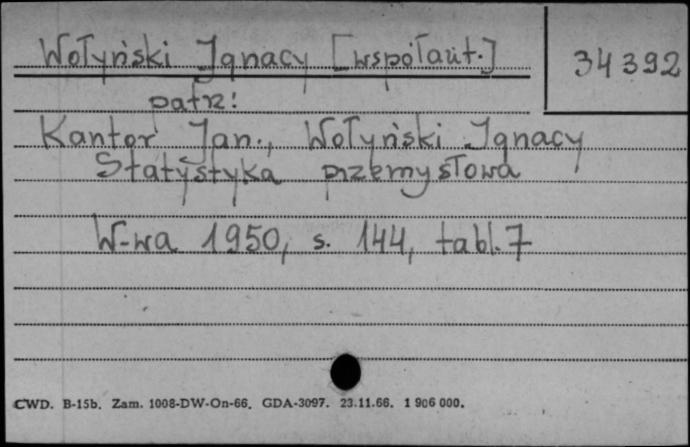 Wołyński Ignacy [współaut.]
34392
patrz:
Kantor Jan., Wołyński Ignacy
Statystyka przemysłowa
W-wa 1950, s. 144, tabl. 7
CWD. B-15b. Zam. 1008-DW-On-66. GDA-3097. 23.11.66. 1 906 000.